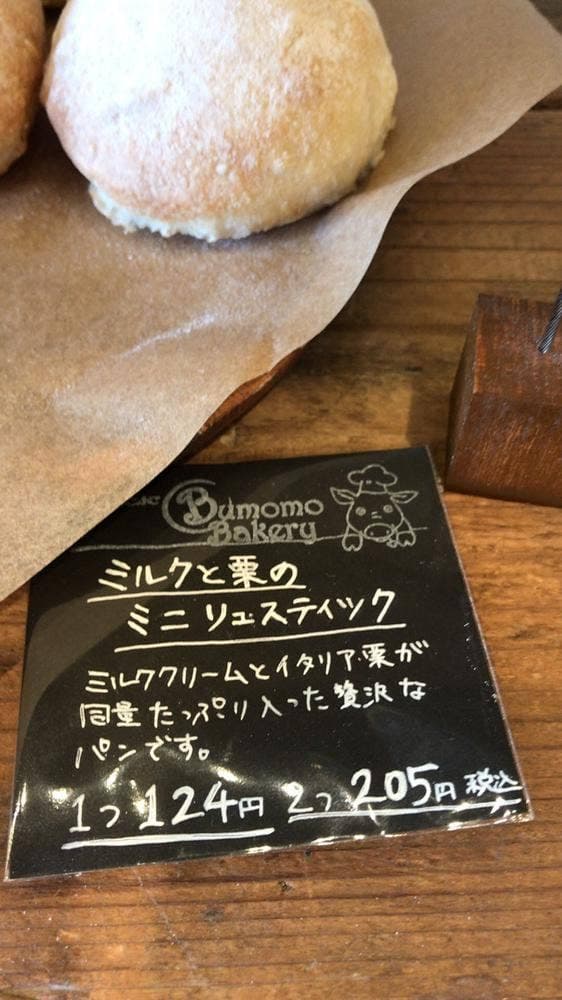 Bumomo
Bakery
ミルクと栗の
ミニ リュスティック
ミルククリームとイタリア栗が
同量たっぷり入った贅沢な
パンです。
1つ 124円 2つ 205円 税込